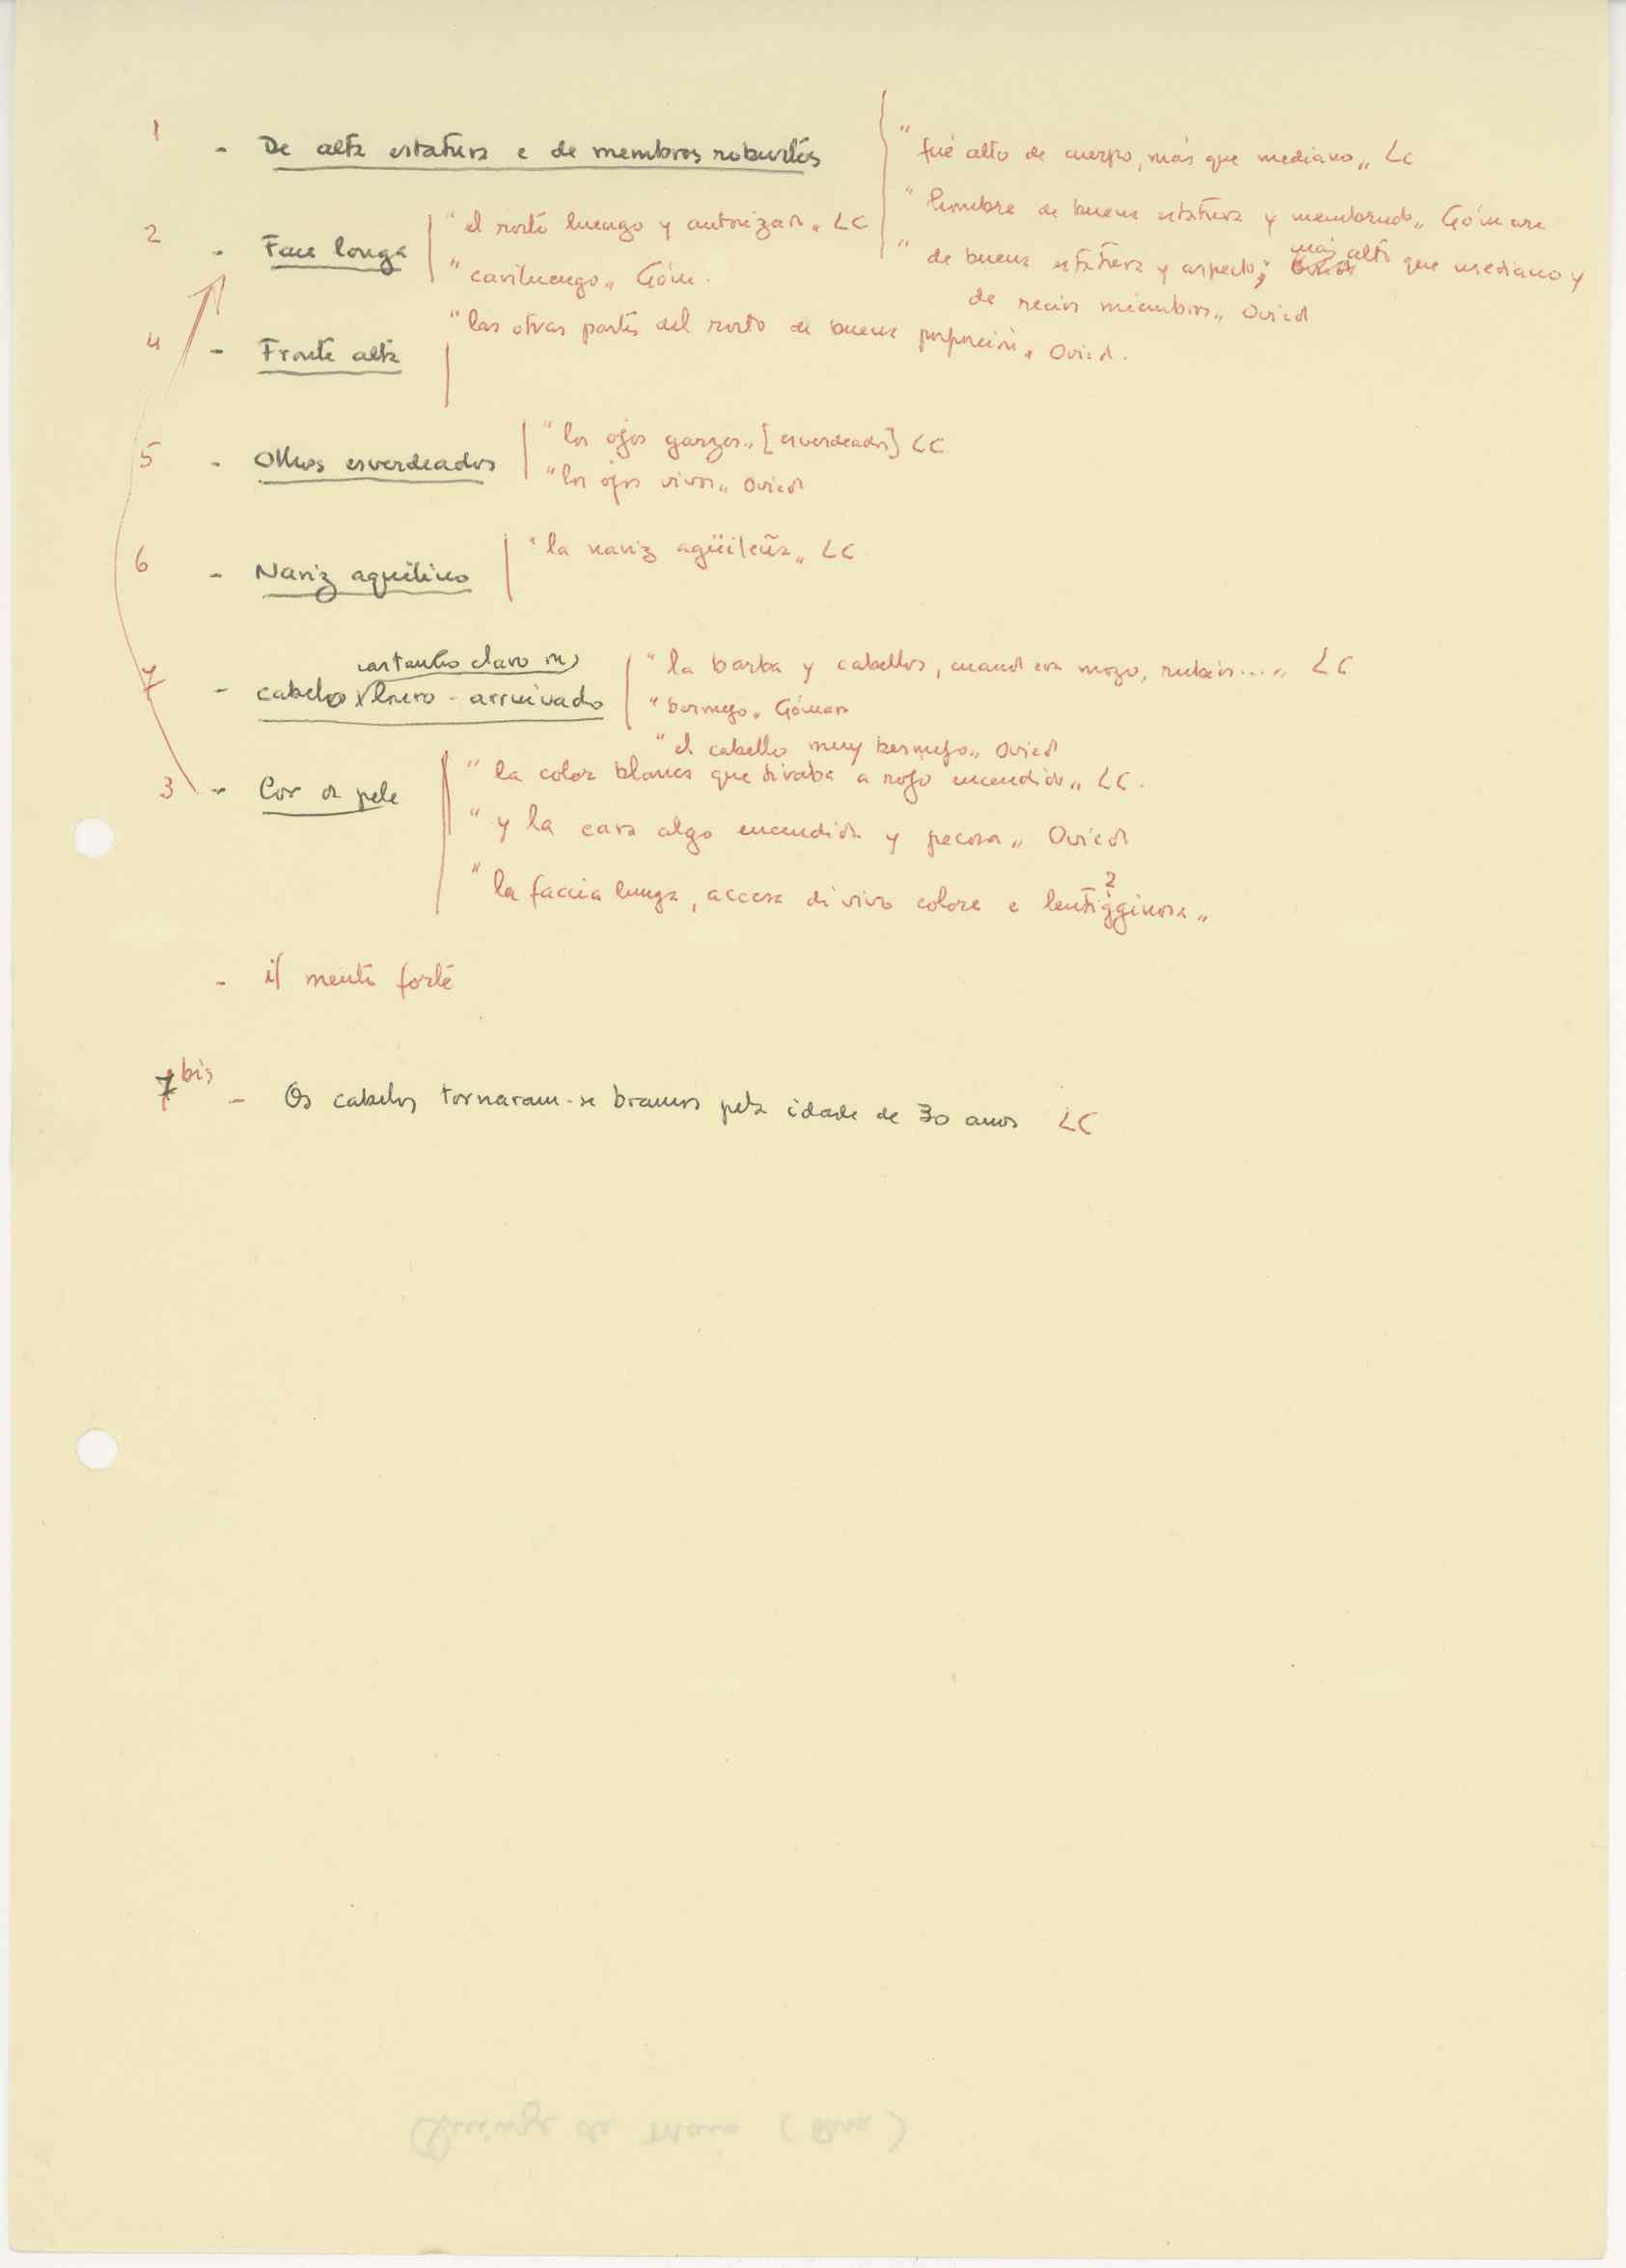 1 - De alta estatura e de membros robustos
" fué alto de cuerpo, más que mediano „ LC
" hombre de buena estatura y membrudo „ Gómara
" de buena estatura y aspecto; más alto que mediano y
de recios miembros „ Oviedo
2 - Face longa
" el rosto luengo y autorizado „ LC
" cariluengo „ Góm.
4 - Fronte alta
" las otras partes del rosto de buena proporción „ Ovied.
5 - Olhos esverdeados
" los ojos garzos „ [esverdeados] LC
" los ojos vivos „ Oviedo
6 - Nariz aquilino
" la nariz agüileña „ LC
castanho claro ou
7 - cabelo louro - arruivado
" la barba y cabellos, cuando era mozo, rubios.... „ LC
" bermejo „ Gómara
" el cabello muy bermejo „ Oviedo
3 - Cor da pele
" la color blanca que tiraba a rojo encendido „ LC.
" y la cara algo encendida y pecosa „ Oviedo
2
" la faccia lunga, accesa di vivo colore e lentigginosa „
- il mento forte
7 bis - Os cabelos tornaram-se brancos pela idade de 30 anos LC